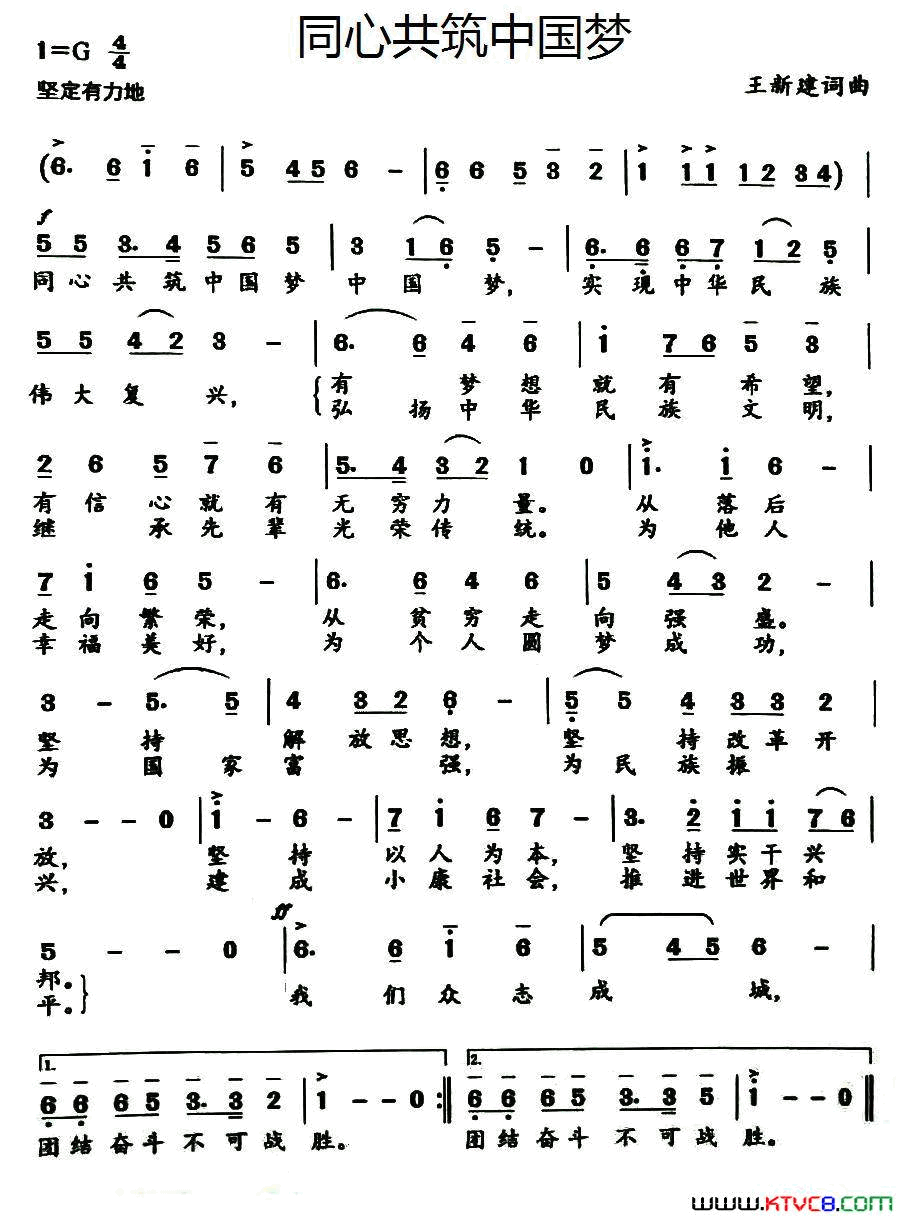 同心共筑中国梦
1=G 4/4
坚定有力地
王新建词曲
(6. 6 i 6 | 5 45 6 - | 6 6 5 3 2 | 1 11 12 34) |
f
55 3.4 56 5 | 3 16 5 - | 6.6 67 12 5 |
同心共筑中国梦 中国梦, 实现中华民族
55 42 3 - | 6. 6 4 6 | i 76 5 3 |
伟大复兴, { 有梦想就有希望,
弘扬中华民族文明,
2 6 5 7 6 | 5.4 32 1 0 | i. i 6 - |
有信心就有无穷力量。从落后
继承先辈光荣传统。为他人
7 i 6 5 - | 6. 6 4 6 | 5 43 2 - |
走向繁荣, 从贫穷走向强盛。
幸福美好, 为个人圆梦成功,
3 - 5. 5 | 4 32 6 - | 5 5 4 33 2 |
坚持解放思想, 坚持改革开
为国家富强, 为民族振
3 - - 0 | i - 6 - | 7 i 6 7 - | 3. 2 ii 76 |
放, 坚持以人为本, 坚持实干兴
兴, 建成小康社会, 推进世界和
ff
5 - - 0 | 6. 6 i 6 | 5 45 6 - |
邦。}
平。
我们众志成城,
1. 2.
66 65 3.3 2 | 1 - - 0 :|| 66 65 3.3 5 | i - - 0 ||
团结奋斗不可战胜。 团结奋斗不可战胜。
www.KTVC8.com